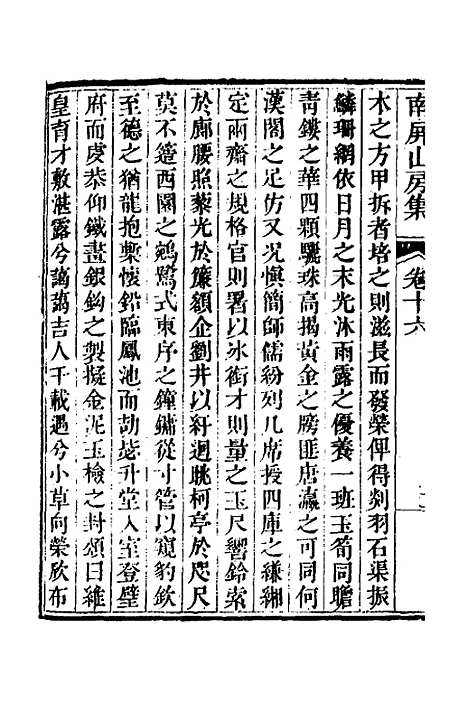 南屏山房集 卷十六
木之方甲拆者培之則滋長而發榮俾得剡羽石渠振
鱗珊網依日月之末光沐雨露之優養一班玉筍同瞻
青鏤之華四顆驪珠高揭黃金之牓匪唐瀛之可同何
漢閣之足仿又況愼簡師儒紛列几席授四庫之縑緗
定兩齋之規格官則署以氷銜才則量之玉尺響鈴索
於廊腰照藜光於簾額企劉井以紆迴眺柯亭於咫尺
莫不簉西園之鵷鷺式東序之鐘鏞從寸管以窺豹欽
至德之猶龍抱槧懷鉛臨鳳池而劼毖升堂入室登璧
府而虔恭仰鐵畫銀鉤之製擬金泥玉檢之封頌曰維
皇育才敷湛露兮藹藹吉人千載遇兮小草向榮欣布